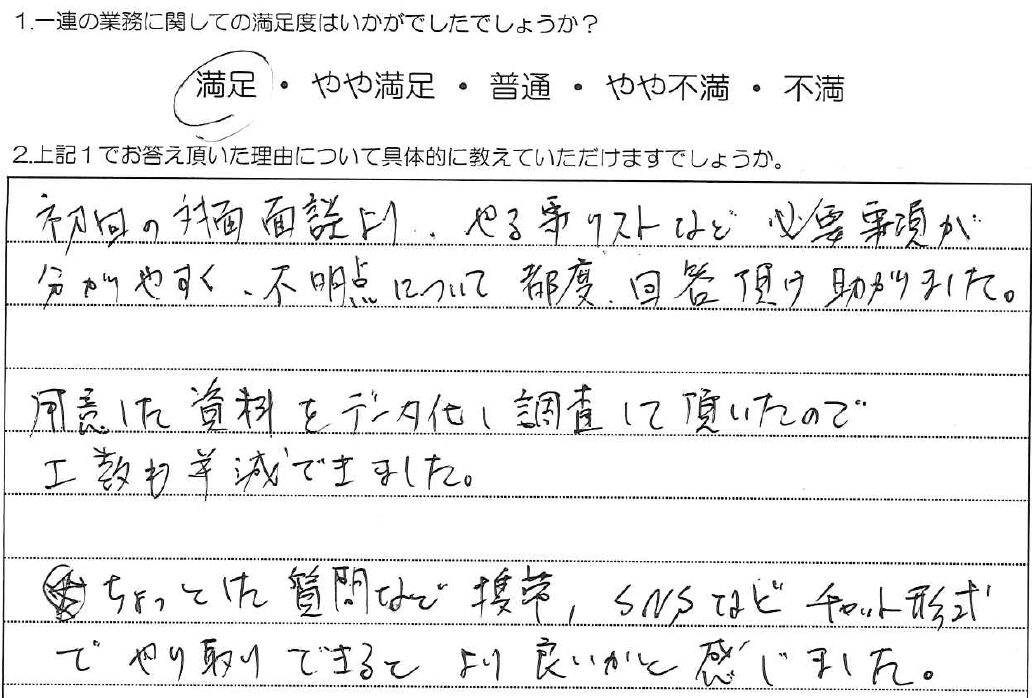 1.一連の業務に関しての満足度はいかがでしたでしょうか？
満足 ・ やや満足 ・ 普通 ・ やや不満 ・ 不満
2.上記１でお答え頂いた理由について具体的に教えていただけますでしょうか。
初回の対面面談より、やる事リストなど必要事項が
分かりやすく、不明点について都度、回答頂け助かりました。
用意した資料をデータ化し調査して頂いたので
工数も半減できました。
ちょっとした質問など携帯，SNSなどチャット形式
でやり取りできるとより良いかと感じました。